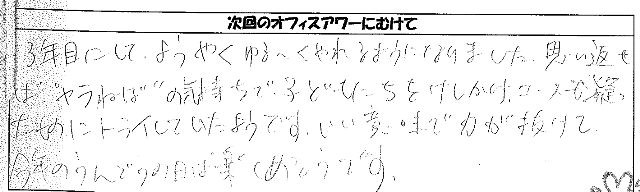 次回のオフィスアワーにむけて
3年目にして、ようやくゆる〜くやれるようになりました。思い返せ
ば"ヤラねば"の気持ちで、子どもたちをけしかけ、コースも
ためにトライしていたようです。いい意味で力が抜けて、
今年のうんどうの日は楽しめそうです。